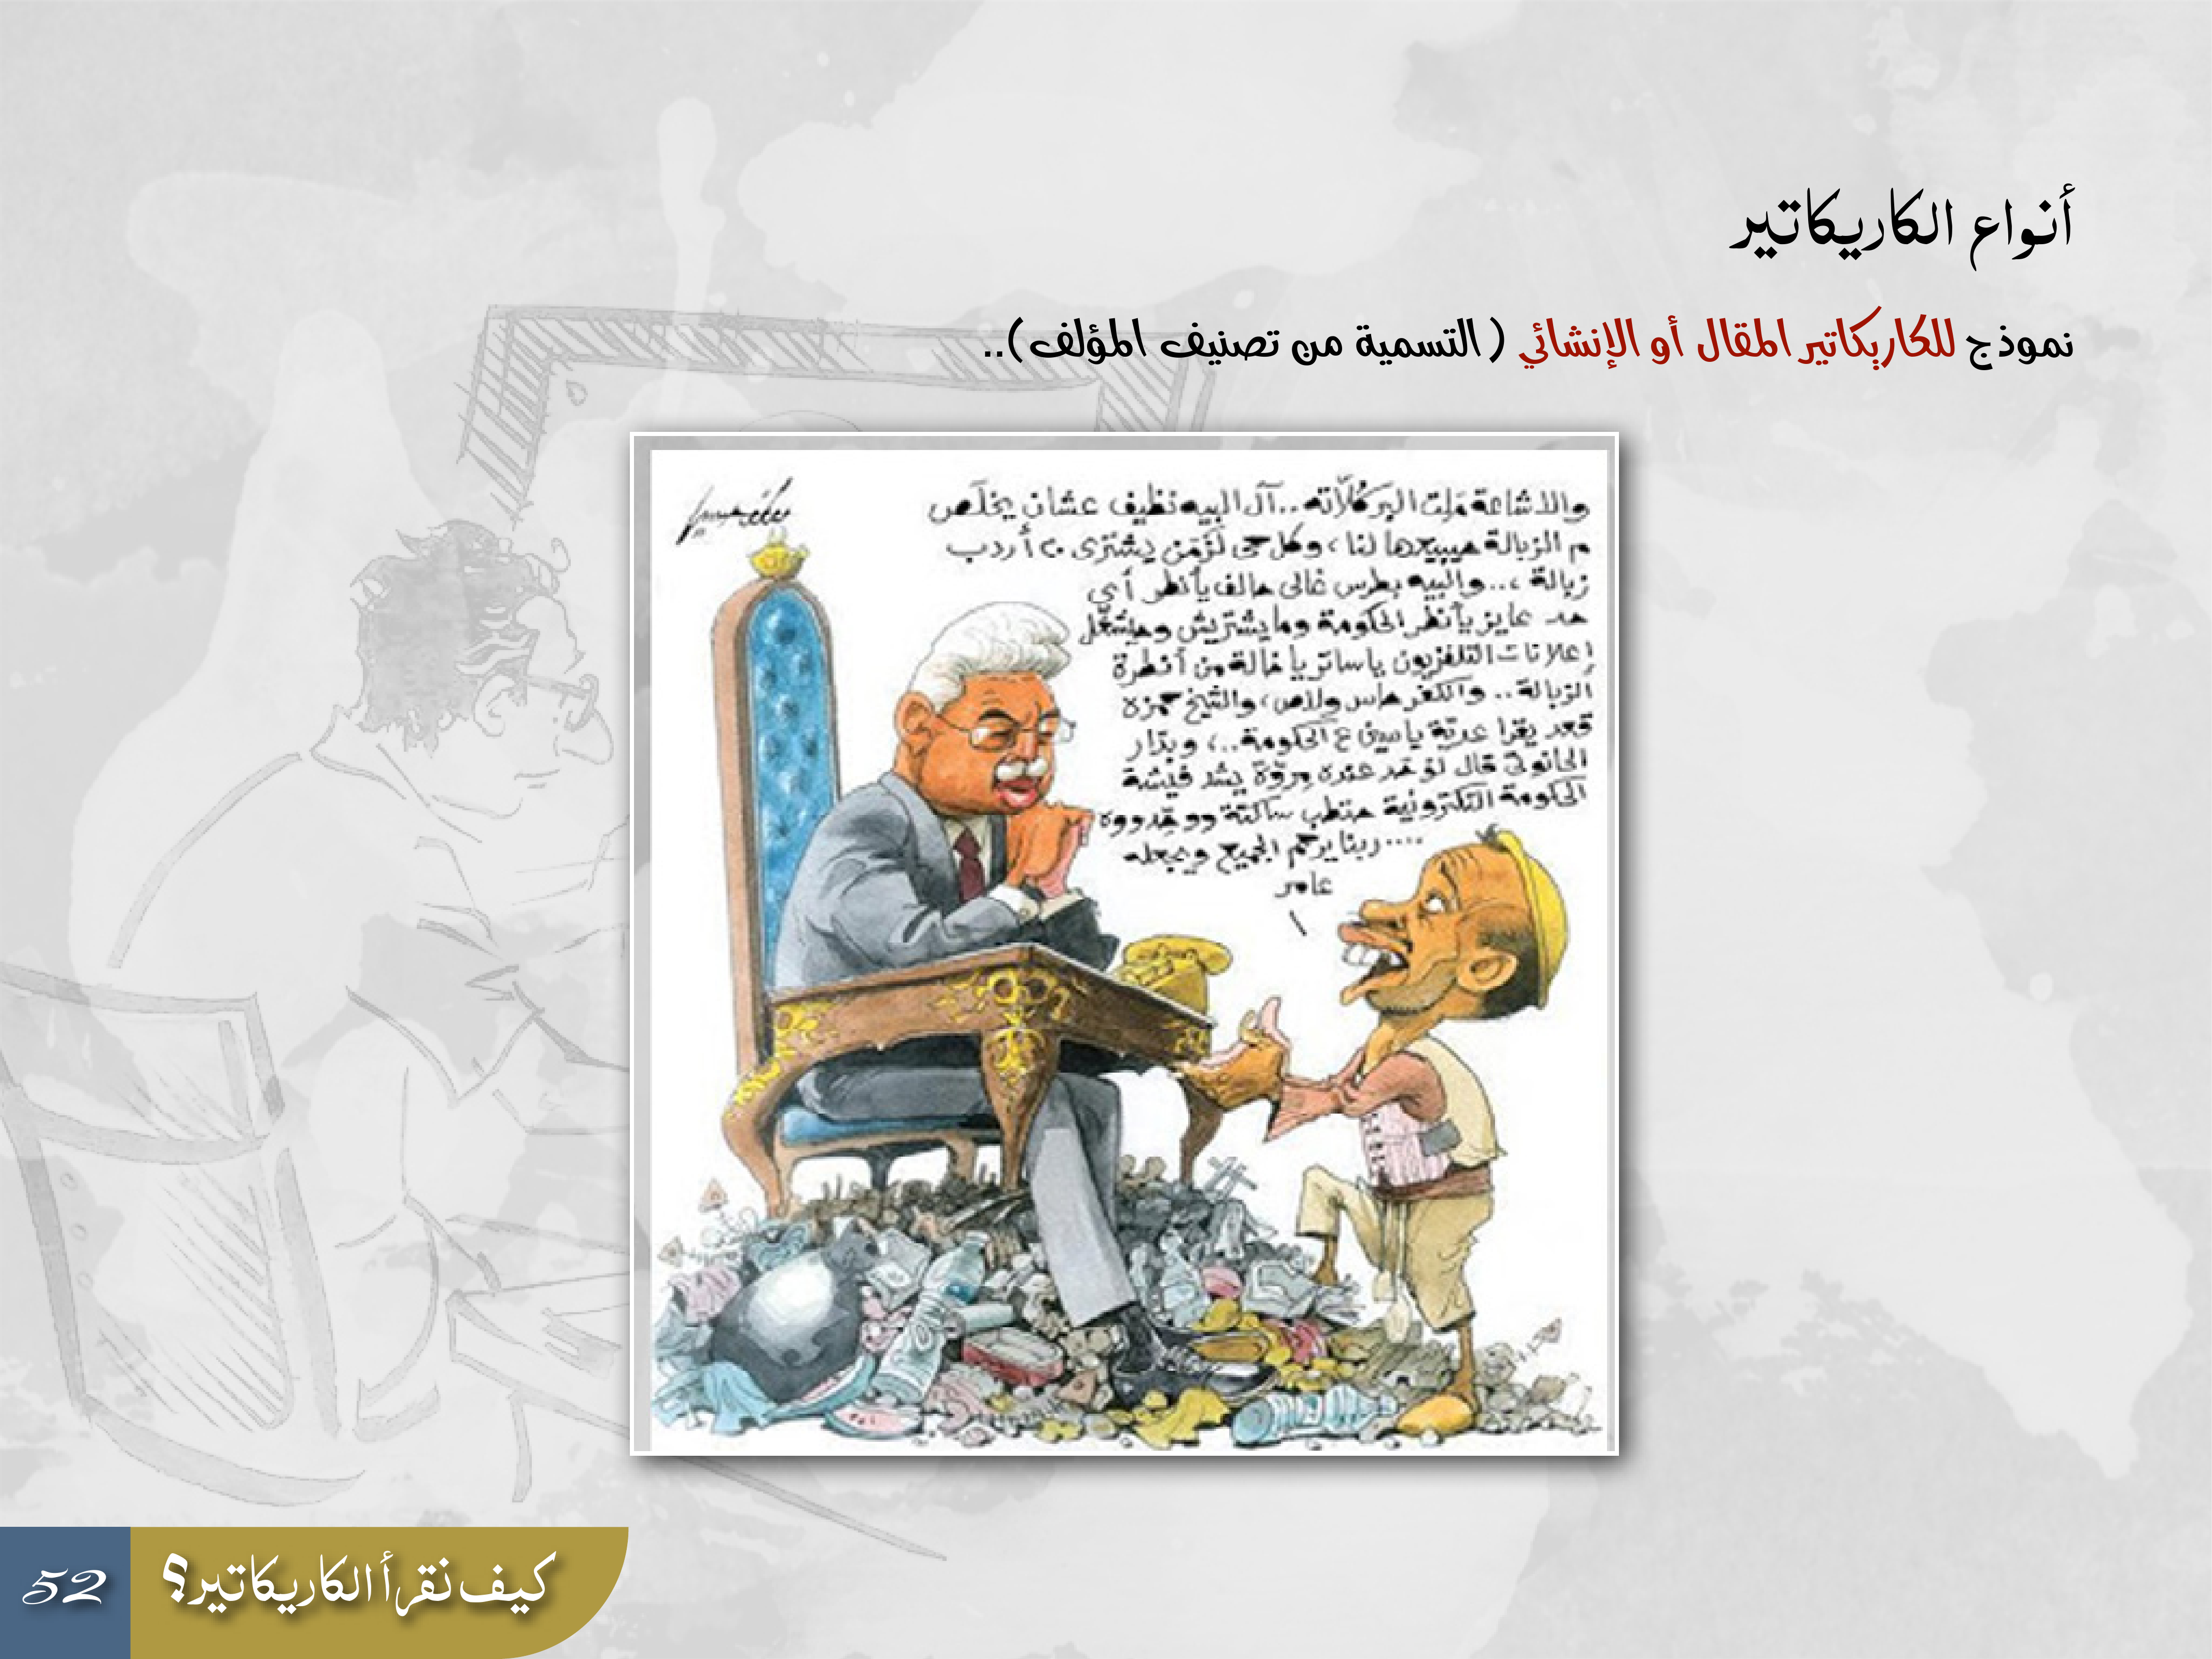 أنواع الكاريكاتير
نموذج للكاريكاتير المقال أو الإنشائي ( التسمية من تصنيف المؤلف)..
والاشاعة مَلِت البر كُلّاته.. آل البيه نظيف عشان يخلَّص
م الزبالة هيبيعها لنا، وكل حى لَزْمَن يشترى ٢٠ أردب
زبالة ... والبيه بطرس غالى حالف يأنطر أي
حد عايز يأنظر الحكومة ومايشتريش وهيشغَّل
إعلانات التلفزيون ياساتر يا خالة من أنطرة
الزبالة.. والكفر هاس ولاص، والشيخ حمزه
قعد يقرا عديّة ياسين ع الحكومة..، وبدّار
الحانوتى قال لوحد عنده مروّة يشد فيشة
الحكومة التكترونية هتطب ساكتة
.... ربنا يرحم الجميع ويجعله
عامر
كيف نقرأ الكاريكاتير؟
52